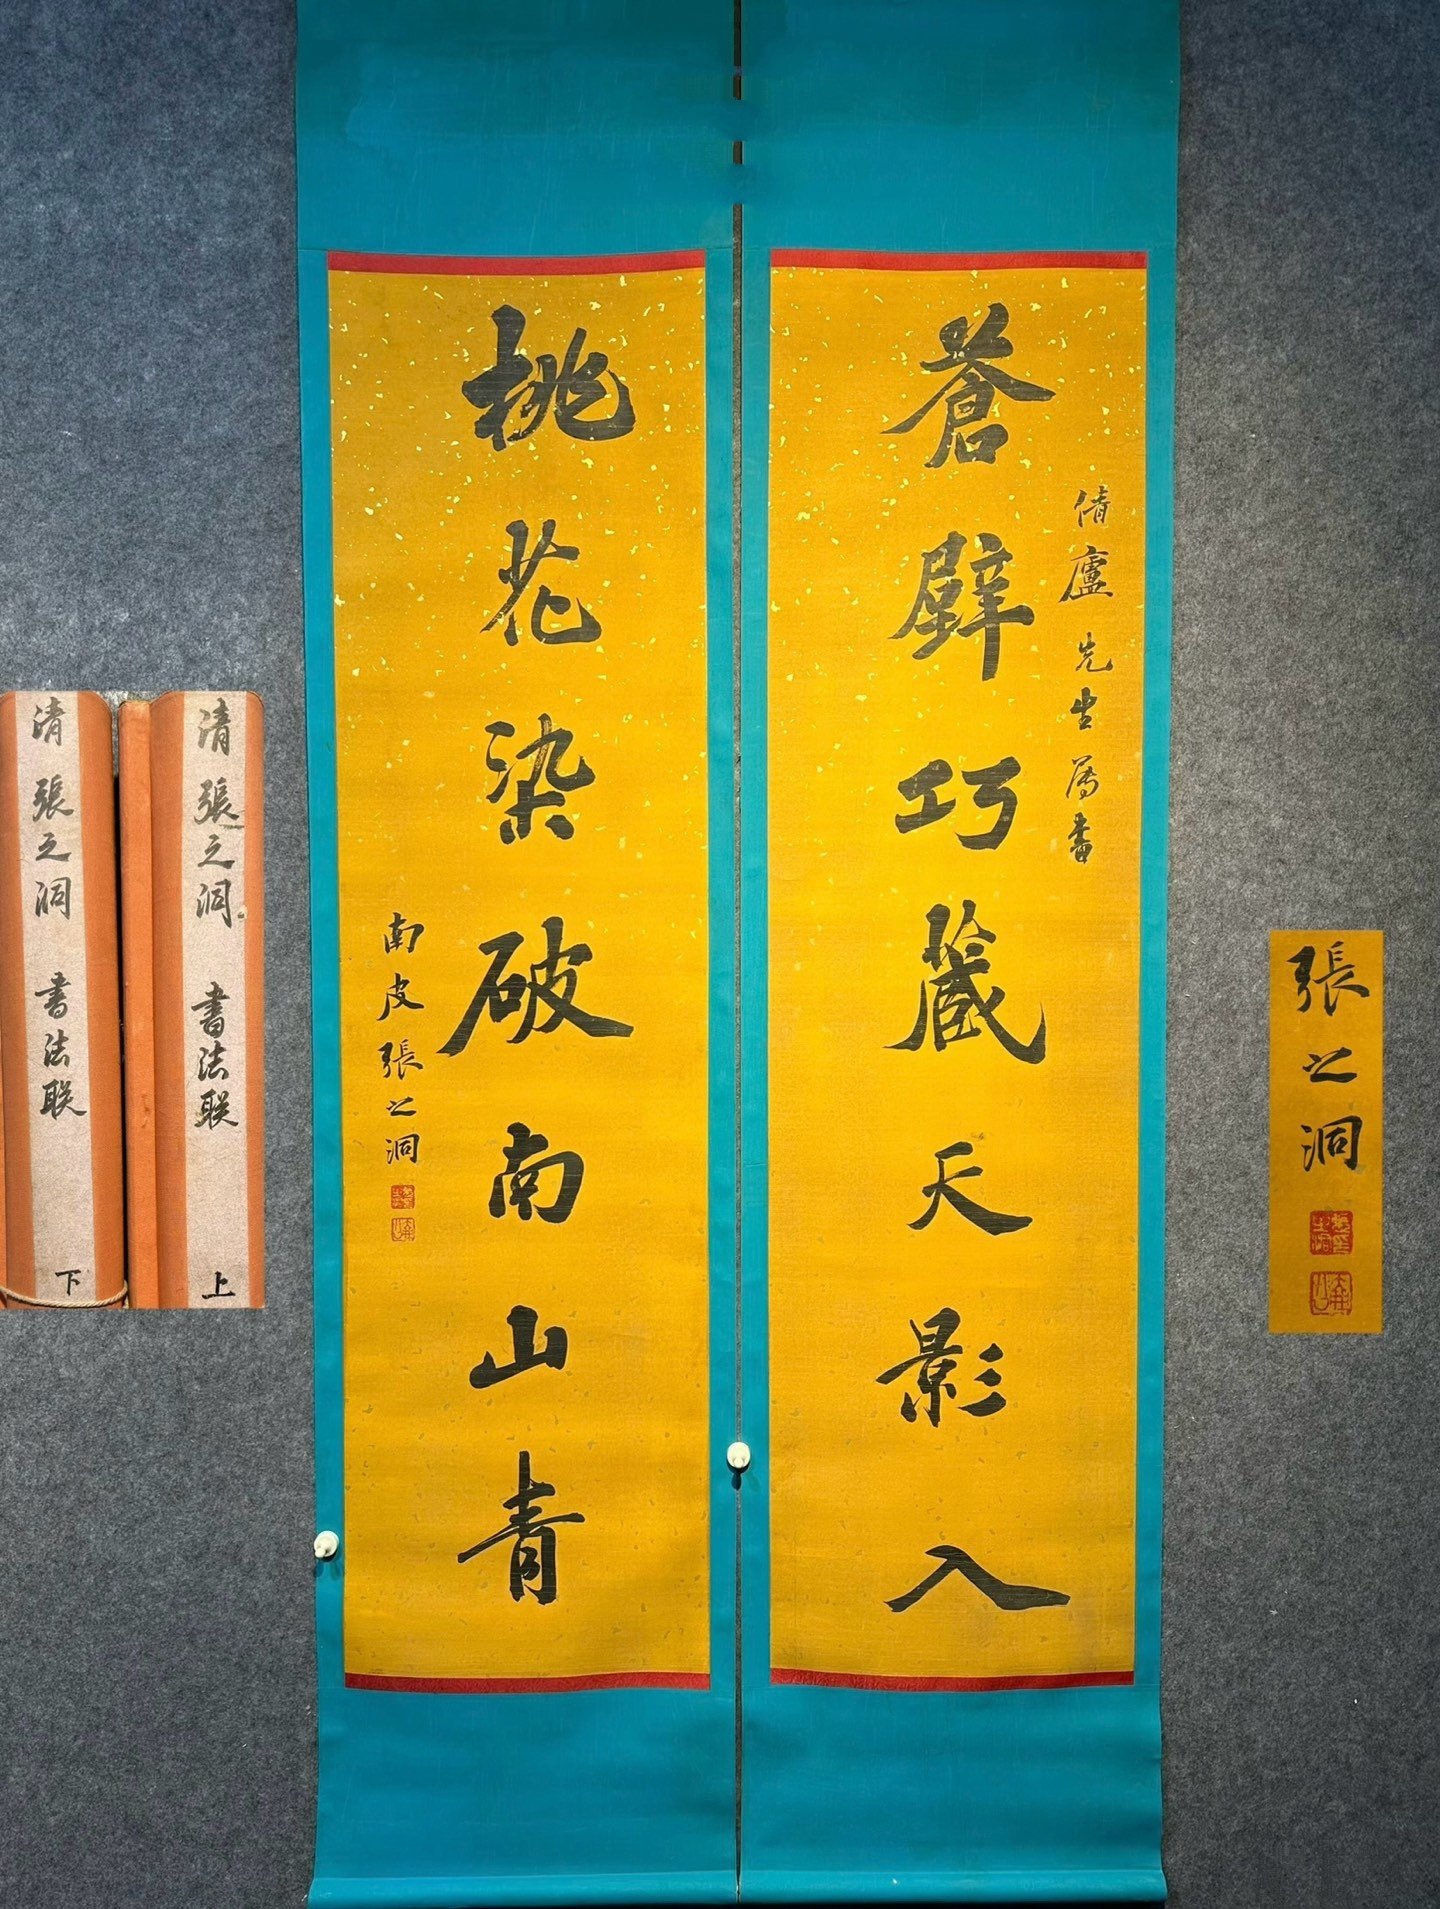 蒼壁巧藏天影入
倩廬先生屬書
桃花染破南山青
南皮張之洞
清 張之洞 書法联 上
清 張之洞 書法联 下
張之洞